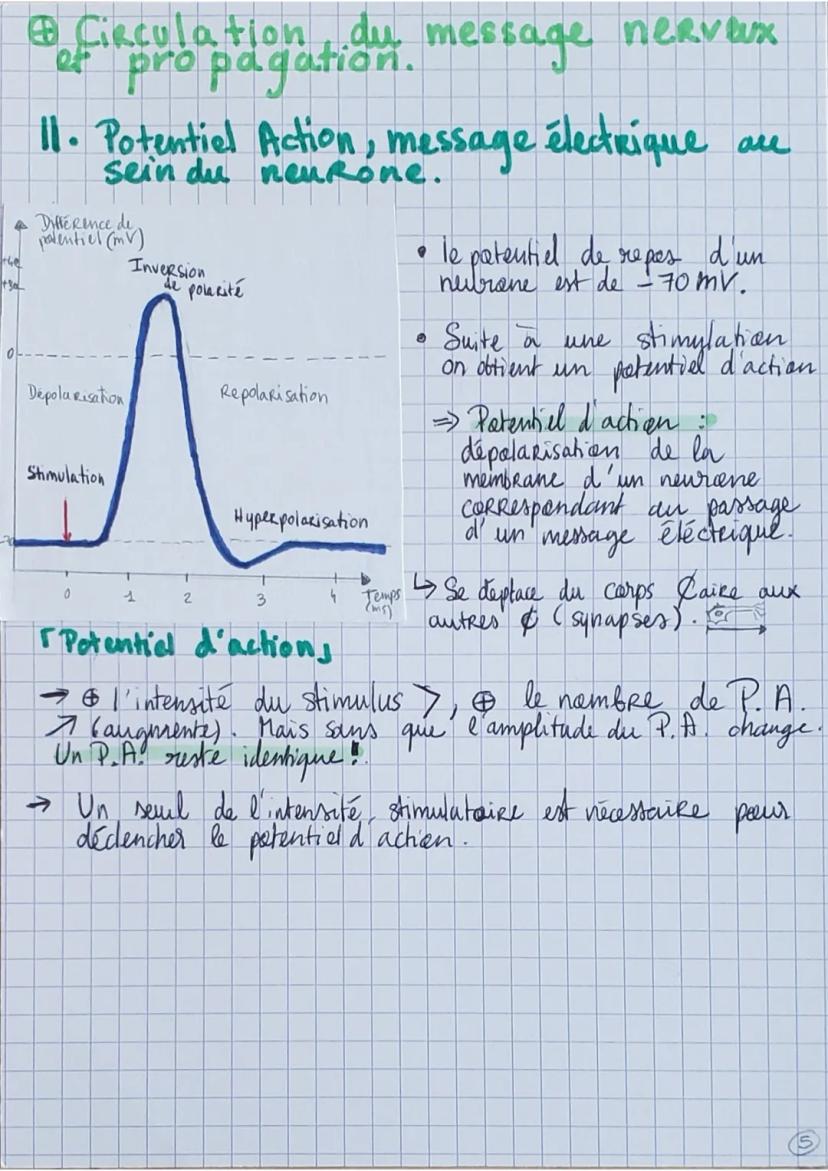 ⊕ Circulation du message nerveux
et propagation.
II. Potentiel Action, message électrique au
sein du neurone.
Différence de
potentiel (mV)
+40
+30
0
Inversion
de polarité
Dépolarisation
Repolarisation
Stimulation
Hyperpolarisation
-70
0 1 2 3 4 Temps
(ms)
• le potentiel de repos d'un
neurone est de -70 mV.
• Suite à une stimulation
on obtient un potentiel d'action
⇒ Potentiel d'action :
dépolarisation de la
membrane d'un neurone
correspondant au passage
d'un message éléctrique.
↳ Se déplace du corps ₵aire aux
autres ₵ (synapses).
「Potentiel d'action」
→ ⊕ l'intensité du stimulus >, ⊕ le nombre de P.A.
↗ (augmente). Mais sans que l'amplitude du P.A. change.
Un P.A. reste identique !
→ Un seuil de l'intensité stimulatoire est nécessaire pour
déclencher le potentiel d'action.
5